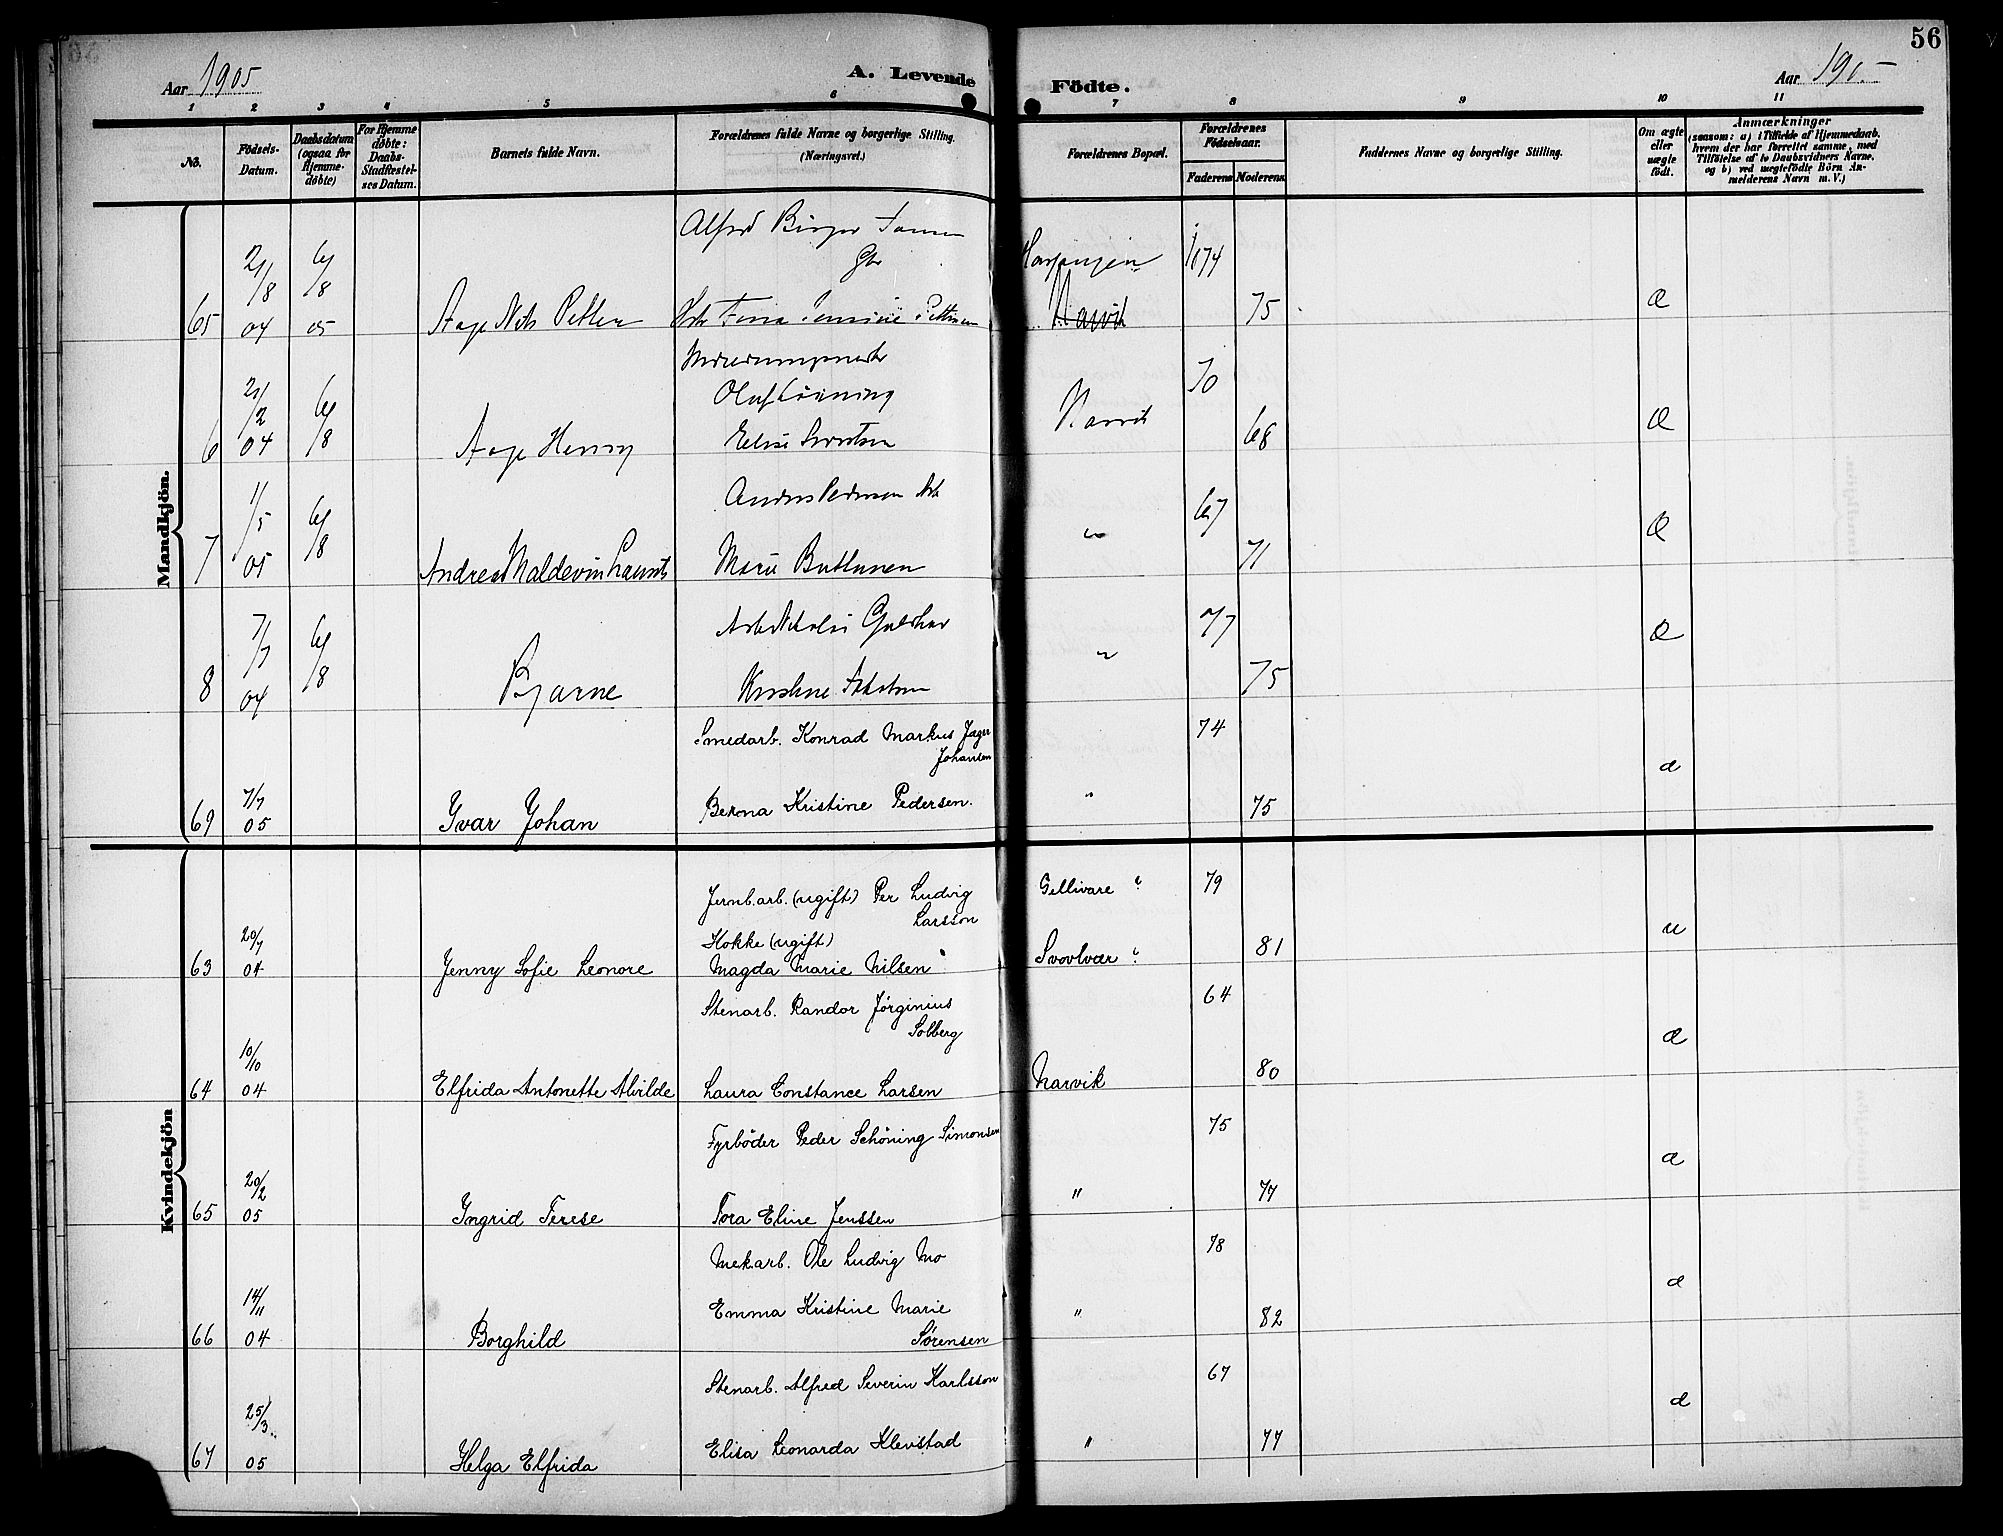 56
Aar 1905
A. Levende
Födte.
Aar 1905
1 2 3 4 5 6 7 8 9 10 11
No.
Födsels-Datum.
Daabsdatum (ogsaa for Hjemme-döbte)
For Hjemme döbte: Daabs-Stadfæstel-ses Datum.
Barnets fulde Navn.
Forældrenes fulde Navne og borgerlige Stilling. (Næringsvei.)
Forældrenes Bopæl.
Forældrenes Födselsaar.
Faderens. Moderens.
Faddernes Navne og borgerlige Stilling.
Om ægte eller uægte födt.
Anmærkninger
(saasom: a) i Tilfælde af Hjemmedaab, hvem der har forrettet samme, med Tilföielse af to Daabsvidners Navne, og b) ved uægtefödte Börn An-melderens Navn m. V.)
Mandkjön.
Alfred Birger
1874
65 21/8 04 6/8 05 Aage Nils Petter
Narvik 75 æ
70
Olaf
6 21/2 04 6/8 Aage Henry Elise
Narvik 68 æ
Anders Pedersen Arb
67
7 1/5 05 6/8 Andreas Maldevin Laurits Marie
" 71 æ
77
8 7/7 04 6/8 Bjarne
" 75 æ
Smedarb. Konrad Markus Jæger Johansen 74
69 7/7 05 Yvar Johan Berona Kristine Pedersen. " 75 æ
Kvindekjön
Jernb.arb. (ugift) Per Ludvig Larsson Gellivare 79
Kokke (ugift)
63 20/7 04 Jenny Sofie Leonore Magda Marie Nilsen Svovlvær 81 u
Stenarb. Randor Jørginius Solberg 64
64 10/10 04 Elfrida Antonette Alvilde Laura Constance Larsen Narvik 80 æ
Fyrböder Peder Schöning Simonsen 75
65 20/2 05 Yngrid Terese Tora Eline Jenssen " 77 æ
Mek.arb. Ole Ludvig Mo 78
66 14/11 04 Borghild Emma Kristine Marie Sørensen " 82 æ
Stenarb. Alfred Severin Karlsson 67
67 25/3 05 Helga Elfrida Elisa Leonarda Klevstad " 77 æ